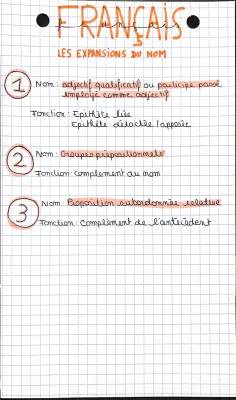 FRANÇAIS
français
LES EXPANSIONS DU NOM
1 Nom : adjectif qualificatif ou participe passé
employé comme adjectif
Fonction : Epithète liée
Epithète détachée / apposée
2 Nom : Groupes prépositionnels
Fonction : complement au nom
3 Nom : Proposition subordonnée relative
Fonction : Complément de l'antécédent